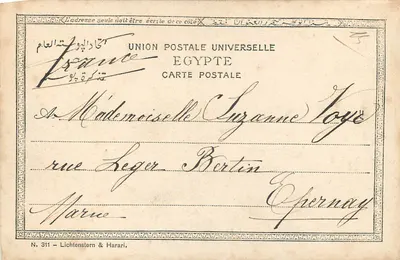 L'adresse seule doit être écrite de ce côté
UNION POSTALE UNIVERSELLE
EGYPTE
CARTE POSTALE
France
A Mademoiselle Suzanne
rue Leger Bertin
Epernay
Marne
N. 311 - Lichtenstern & Harari.